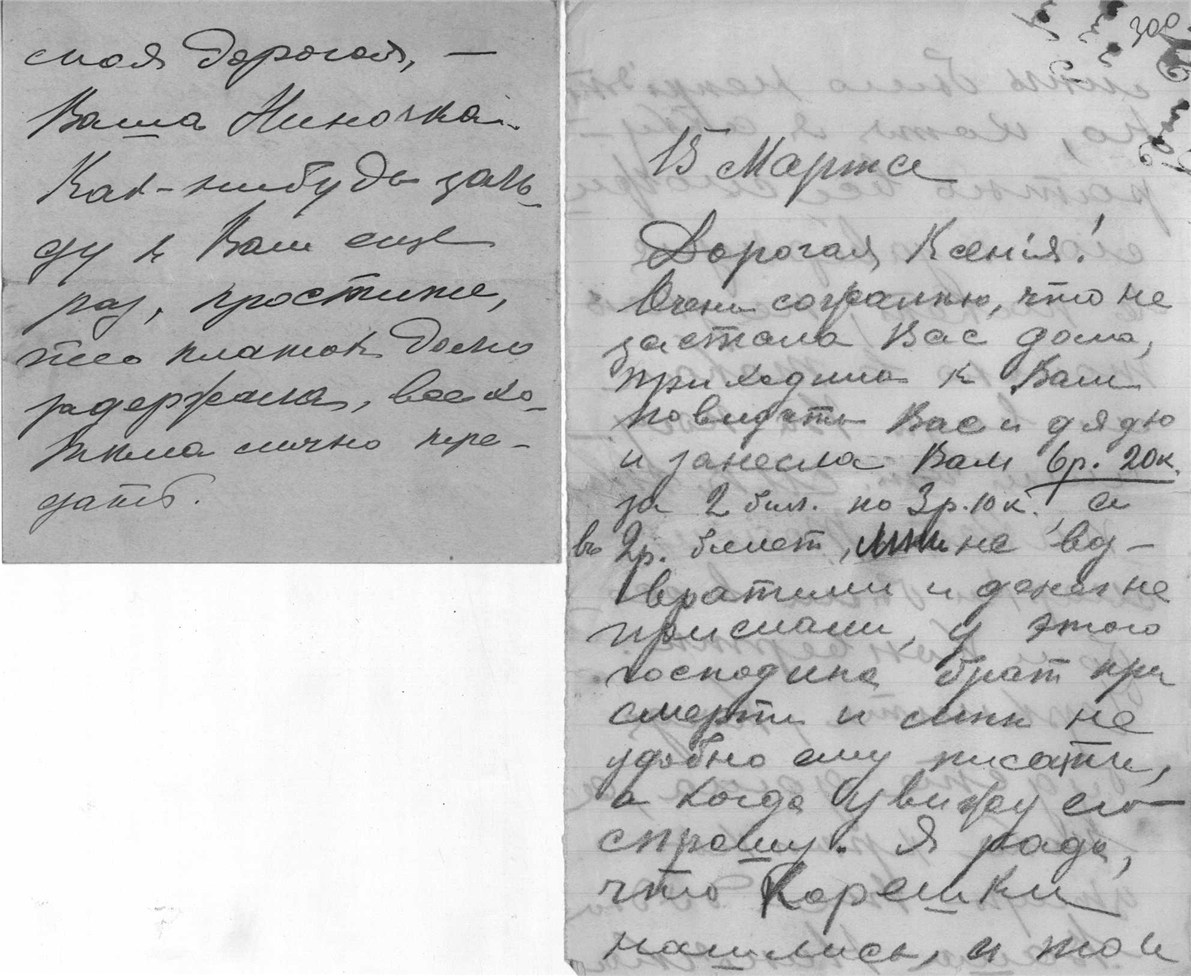 моя дорогая, —
Ваша Ниночка.
Как-нибудь зай-
ду к Вам еще
раз, простите,
что платок долго
задержала, все хо-
тила лично пере-
дать.
300
15 Марта
Дорогая Ксенія!
Очень сожалею, что не
застала Вас дома,
приходила к Вам
повидать Вас и дядю
и занесла Вам 6р. 20к.
за 2 бил. по 3р. 10к., а
въ 2р. билет, мне не воз-
вратили и денег не
прислали, у этого
господина брат при
смерти и мне не
удобно ему писать,
а когда увижу его
спрошу. Я рада,
что Корешки
нашлись, и то и